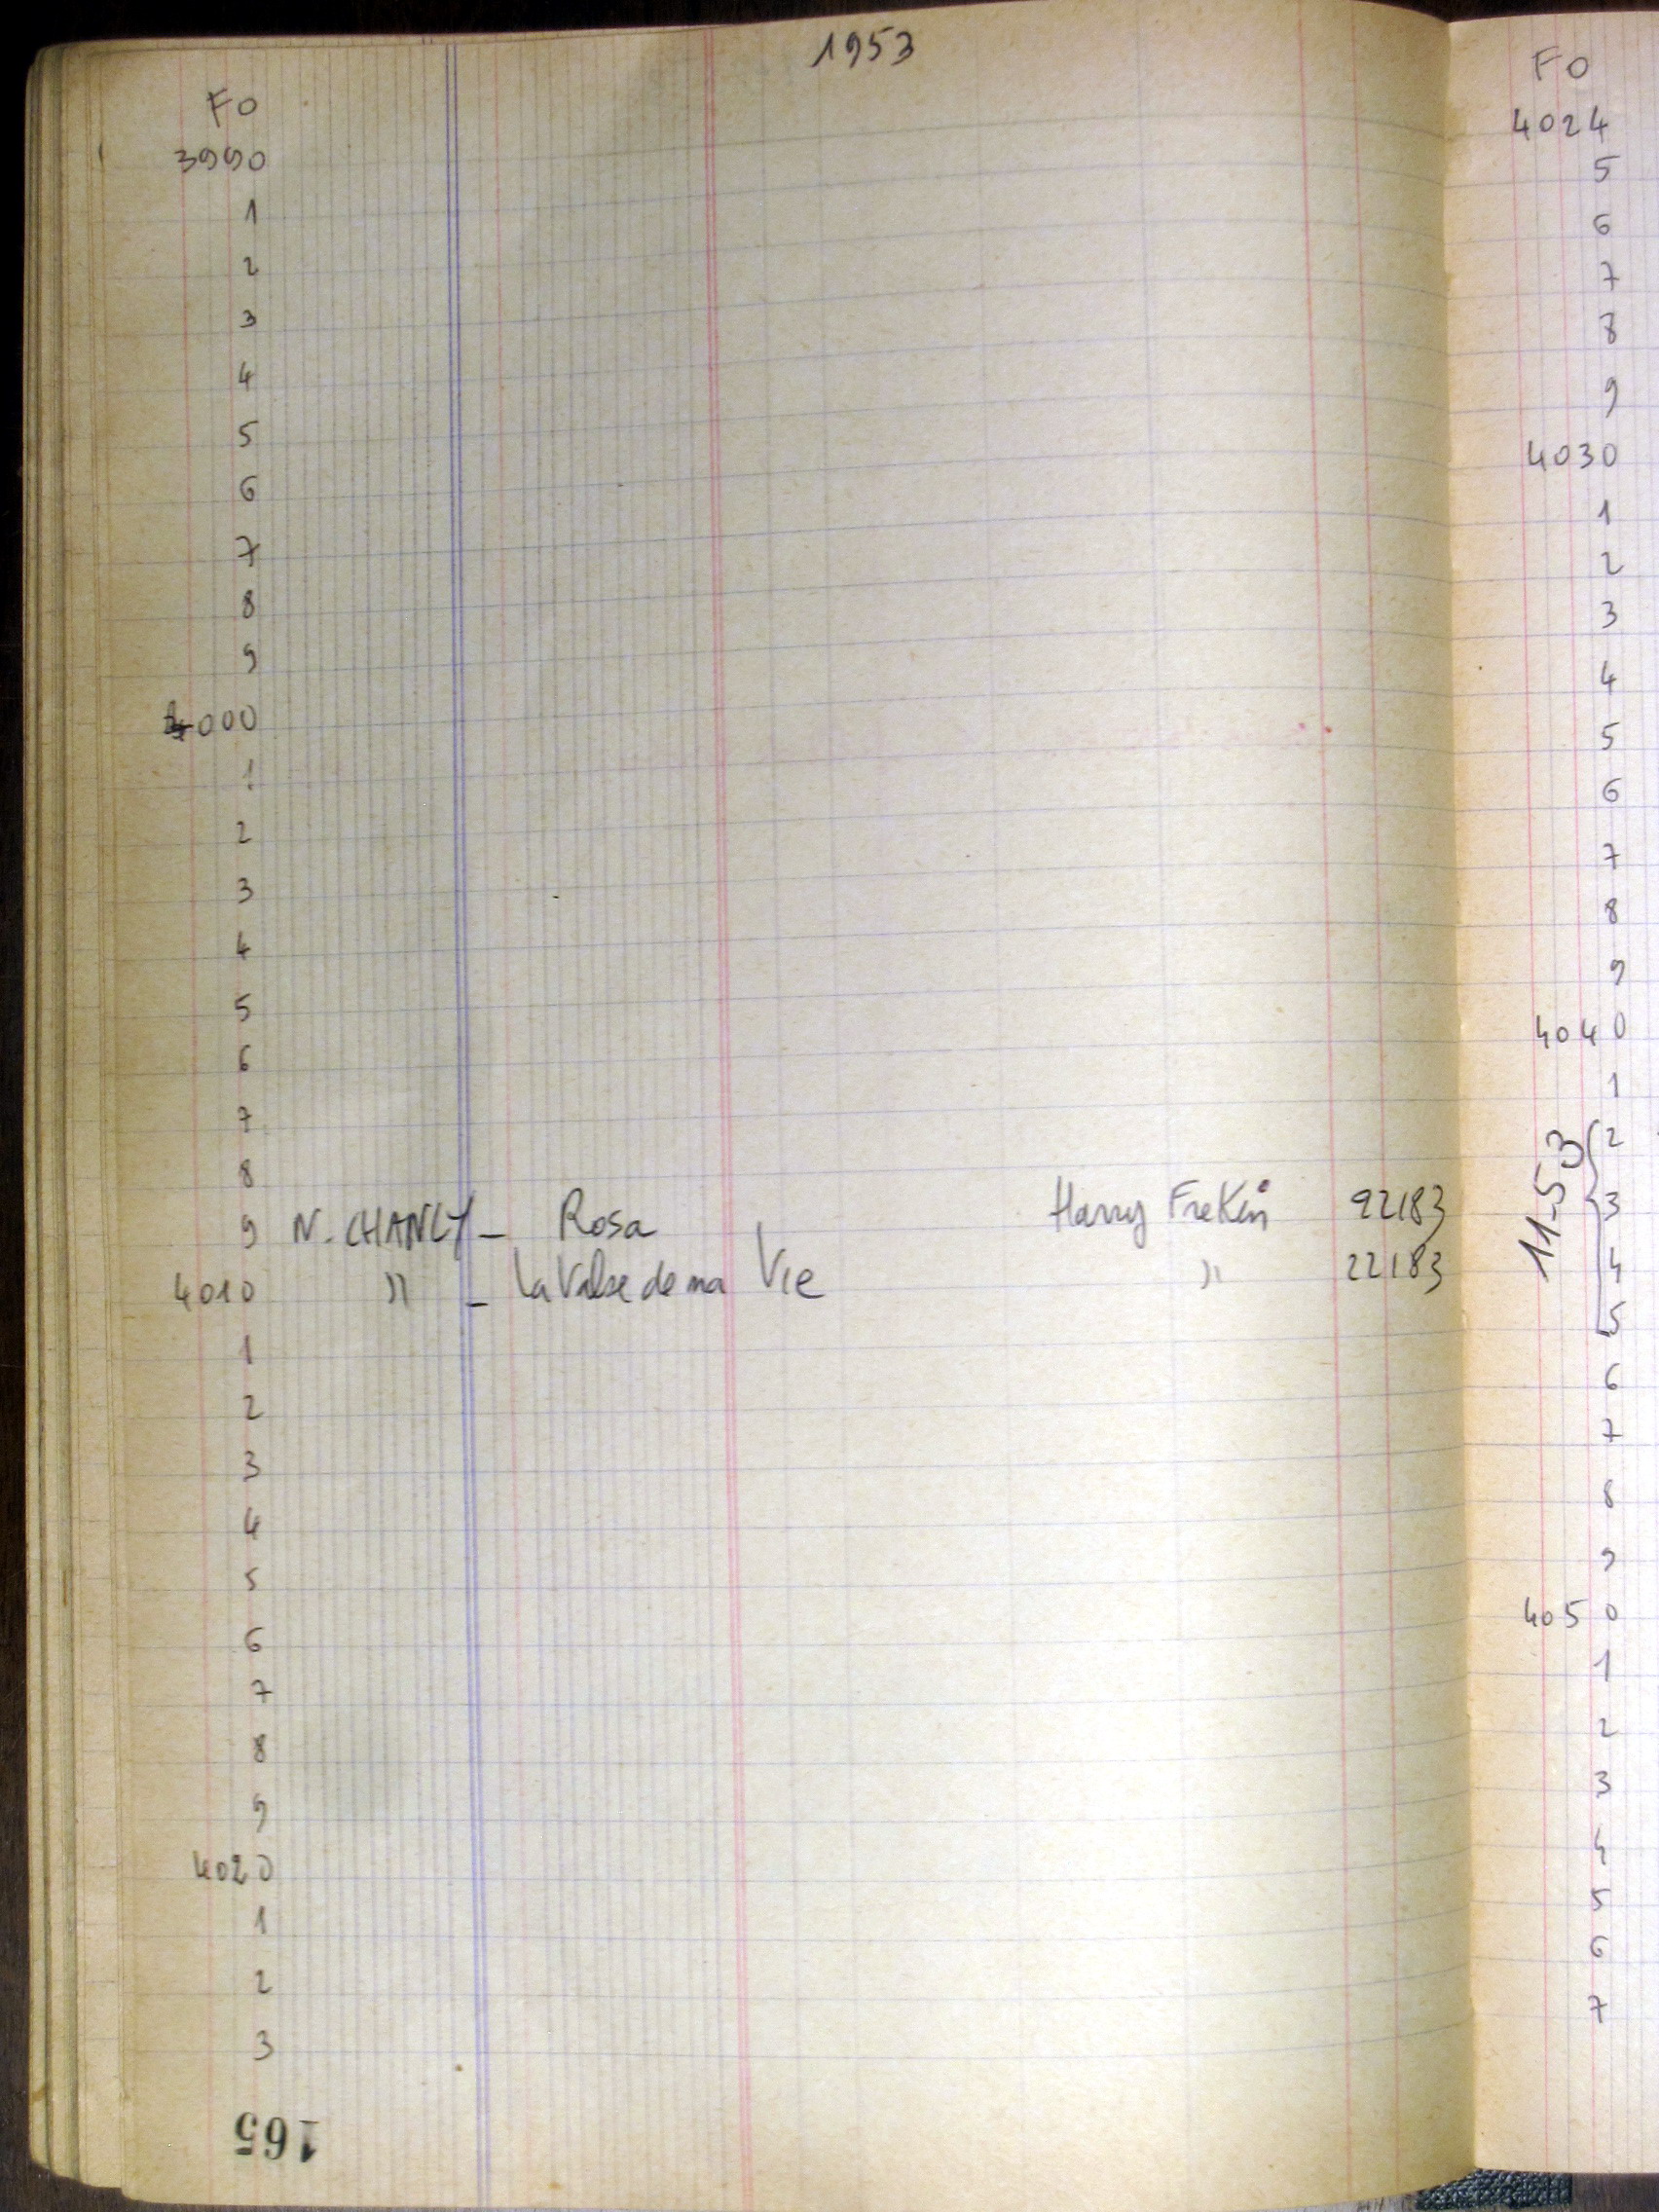 1953
FO
3990
1
2
3
4
5
6
7
8
9
4000
1
2
3
4
5
6
7
8
9 N. CHANLY - Rosa Harry Frekin 22183
4010 " - La Valse de ma Vie " 22183
1
2
3
4
5
6
7
8
9
4020
1
2
3
165
FO
4024
5
6
7
8
9
4030
1
2
3
4
5
6
7
8
9
4040
1
11-53
2
3
4
5
6
7
8
9
4050
1
2
3
4
5
6
7